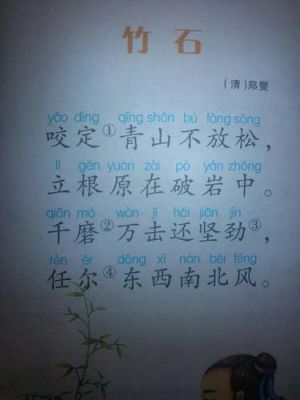 竹石
（清）郑燮
yǎo dìng qīng shān bù fàng sōng
咬定①青山不放松，
lì gēn yuán zài pò yán zhōng
立根原在破岩中。
qiān mó wàn jī hái jiān jìn
千磨②万击还坚劲③，
rèn ěr dōng xī nán běi fēng
任尔④东西南北风。